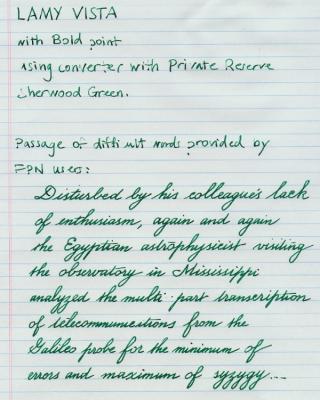 LAMY VISTA
with Bold point
using converter with Private Reserve
Sherwood Green.
Passage of difficult words provided by
FPN users:
Disturbed by his colleague's lack
of enthusiasm, again and again
the Egyptian astrophysicist visiting
the observatory in Mississippi
analyzed the multi-part transcription
of telecommunications from the
Galileo probe for the minimum of
errors and maximum of syzygy...